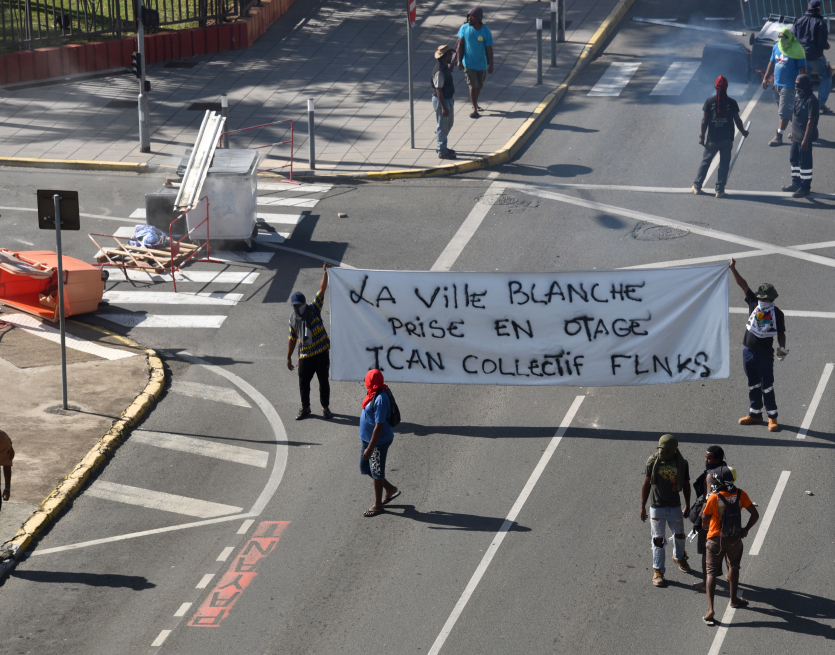 LA VILLE BLANCHE
PRISE EN OTAGE
ICAN COLLECTIF FLNKS
KANAKY